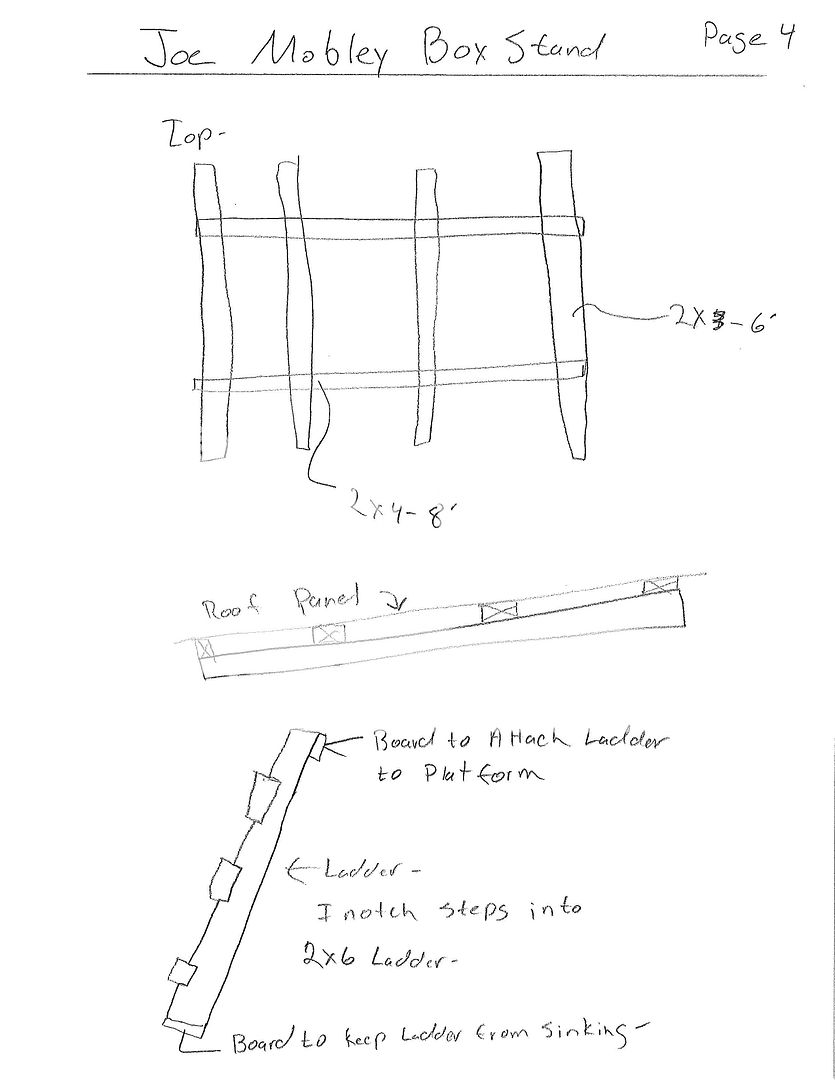 Joe Mobley Box Stand
Page 4
Top-
2x -6'
2x4-8'
Roof Panel
Board to Attach Ladder
to Platform
Ladder -
I notch steps into
2x6 Ladder-
Board to keep Ladder from sinking-